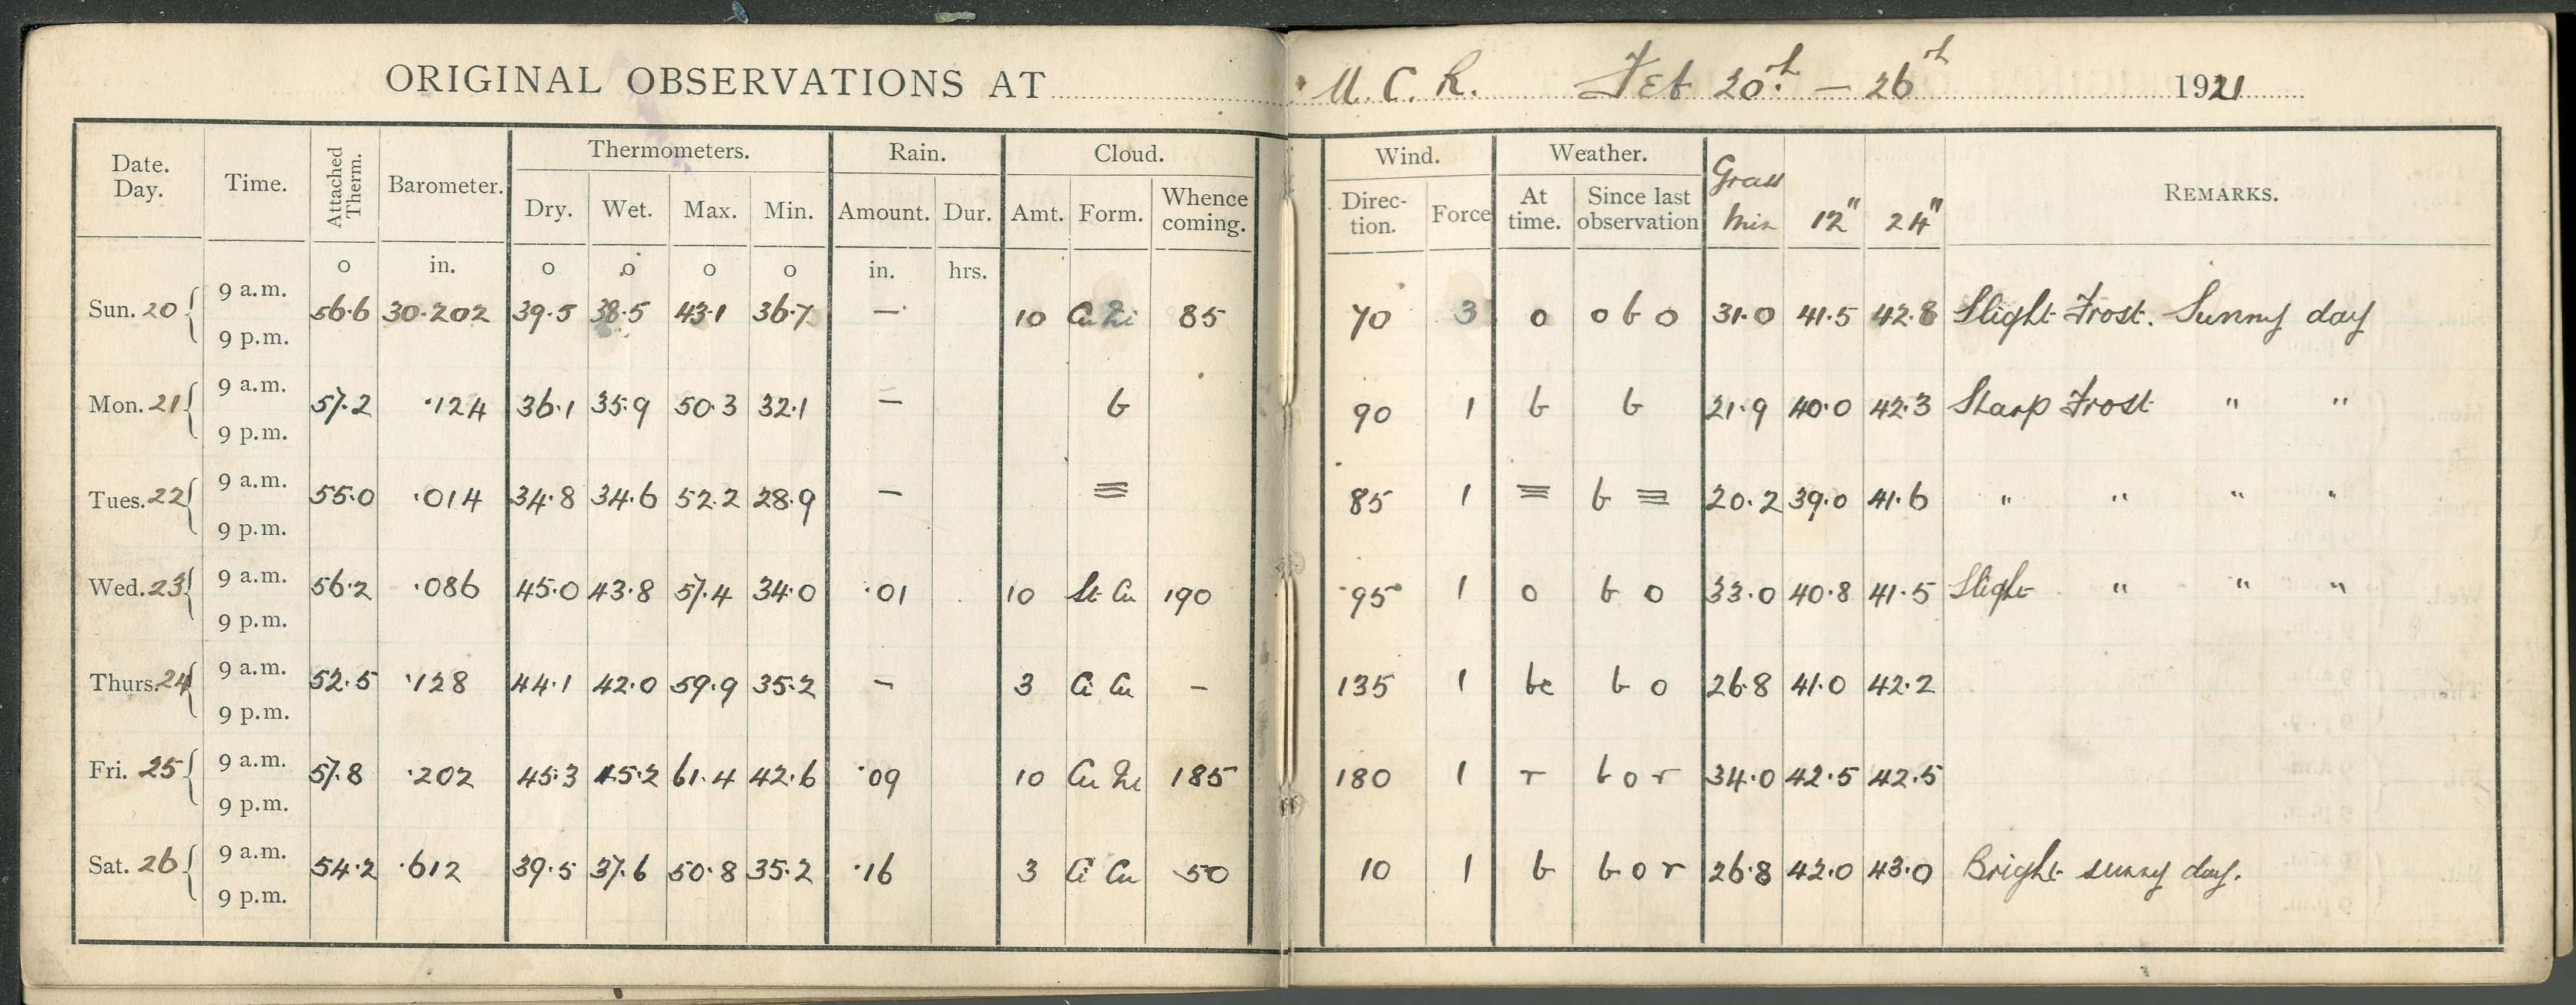 ORIGINAL OBSERVATIONS AT U. C. R. Feb 20th. — 26th 1921
Date. Day. Time. Attached Therm. Barometer. Thermometers. Rain. Cloud. Wind. Weather. Grass Min 12" 24" REMARKS.
Dry. Wet. Max. Min. Amount. Dur. Amt. Form. Whence coming. Direc- tion. Force At time. Since last observation
o in. o o o o in. hrs.
9 a.m.
Sun. 20 56.6 30.202 39.5 38.5 43.1 36.7 — 10 Cu Ni 85 70 3 o o b o 31.0 41.5 42.8 Slight Frost. Sunny day
9 p.m.
9 a.m.
Mon. 21 57.2 .124 36.1 35.9 50.3 32.1 — b 90 1 b b 21.9 40.0 42.3 Sharp Frost " "
9 p.m.
9 a.m.
Tues. 22 55.0 .014 34.8 34.6 52.2 28.9 — ≡ 85 1 ≡ b ≡ 20.2 39.0 41.6 " " " "
9 p.m.
9 a.m.
Wed. 23 56.2 .086 45.0 43.8 57.4 34.0 .01 10 St Cu 190 95 1 o b o 33.0 40.8 41.5 Slight " " "
9 p.m.
9 a.m.
Thurs. 24 52.5 .128 44.1 42.0 59.9 35.2 — 3 Ci Cu — 135 1 bc b o 26.8 41.0 42.2
9 p.m.
9 a.m.
Fri. 25 57.8 .202 45.3 45.2 61.4 42.6 .09 10 Cu Ni 185 180 1 r b o r 34.0 42.5 42.5
9 p.m.
9 a.m.
Sat. 26 54.2 .612 39.5 37.6 50.8 35.2 .16 3 Ci Cu 50 10 1 b b o r 26.8 42.0 43.0 Bright sunny day.
9 p.m.